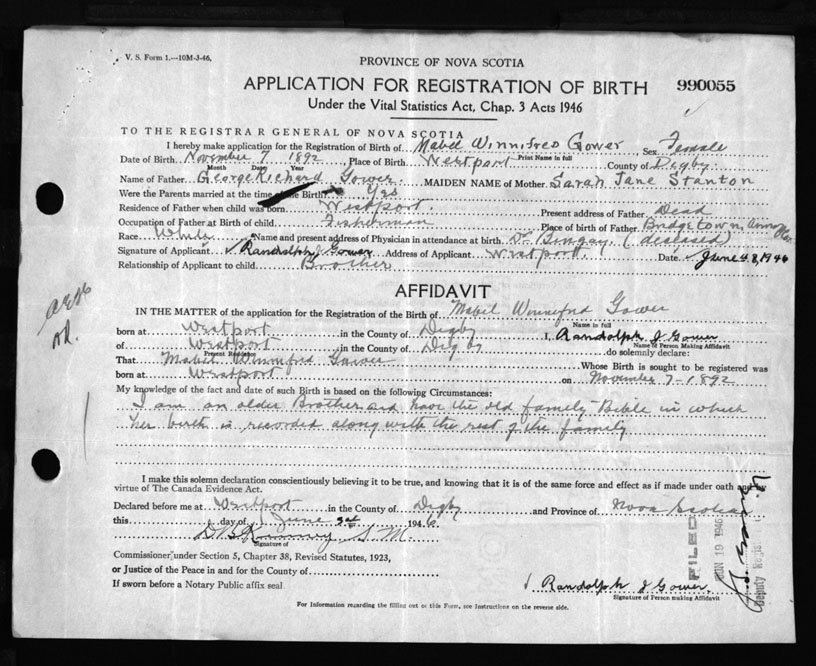 V. S. Form 1.—10M-3-46.
PROVINCE OF NOVA SCOTIA
APPLICATION FOR REGISTRATION OF BIRTH 990055
Under the Vital Statistics Act, Chap. 3 Acts 1946
TO THE REGISTRAR GENERAL OF NOVA SCOTIA
I hereby make application for the Registration of Birth of Mabel Winnifred Gower Sex Female
Print Name in full
Date of Birth November 7 1892 Place of Birth Westport County of Digby
Month Date Year
Name of Father George Richard Gower MAIDEN NAME of Mother Sarah Jane Stanton
Were the Parents married at the time of the Birth Yes
Residence of Father when child was born Westport Present address of Father Dead
Occupation of Father at Birth of child Fisherman Place of birth of Father Bridgetown
Race White Name and present address of Physician in attendance at birth Dr Bingay. (deceased)
Signature of Applicant Randolph J Gower Address of Applicant Westport. Date June 1946
Relationship of Applicant to child Brother
AFFIDAVIT
IN THE MATTER of the application for the Registration of the Birth of Mabel Winnifred Gower
Name in full
born at Westport in the County of Digby I, Randolph J Gower
Name of Person Making Affidavit
of Westport in the County of Digby do solemnly declare:
Present Residence
That Mabel Winnifred Gower Whose Birth is sought to be registered was
born at Westport on November 7-1892
My knowledge of the fact and date of such Birth is based on the following Circumstances:
I am an older Brother and have the old family Bible in which
her birth is recorded along with the rest of the family
I make this solemn declaration conscientiously believing it to be true, and knowing that it is of the same force and effect as if made under oath and by
virtue of The Canada Evidence Act.
Declared before me at Westport in the County of Digby and Province of Nova Scotia
this day of June 1946.
Signature of
Commissioner under Section 5, Chapter 38, Revised Statutes, 1923,
or Justice of the Peace in and for County of
If sworn before a Notary Public affix seal
Randolph J Gower.
Signature of Person making Affidavit
FILED
JUN 19 1946
Deputy Registrar
For Information regarding the filling out of this Form, see Instructions on the reverse side.